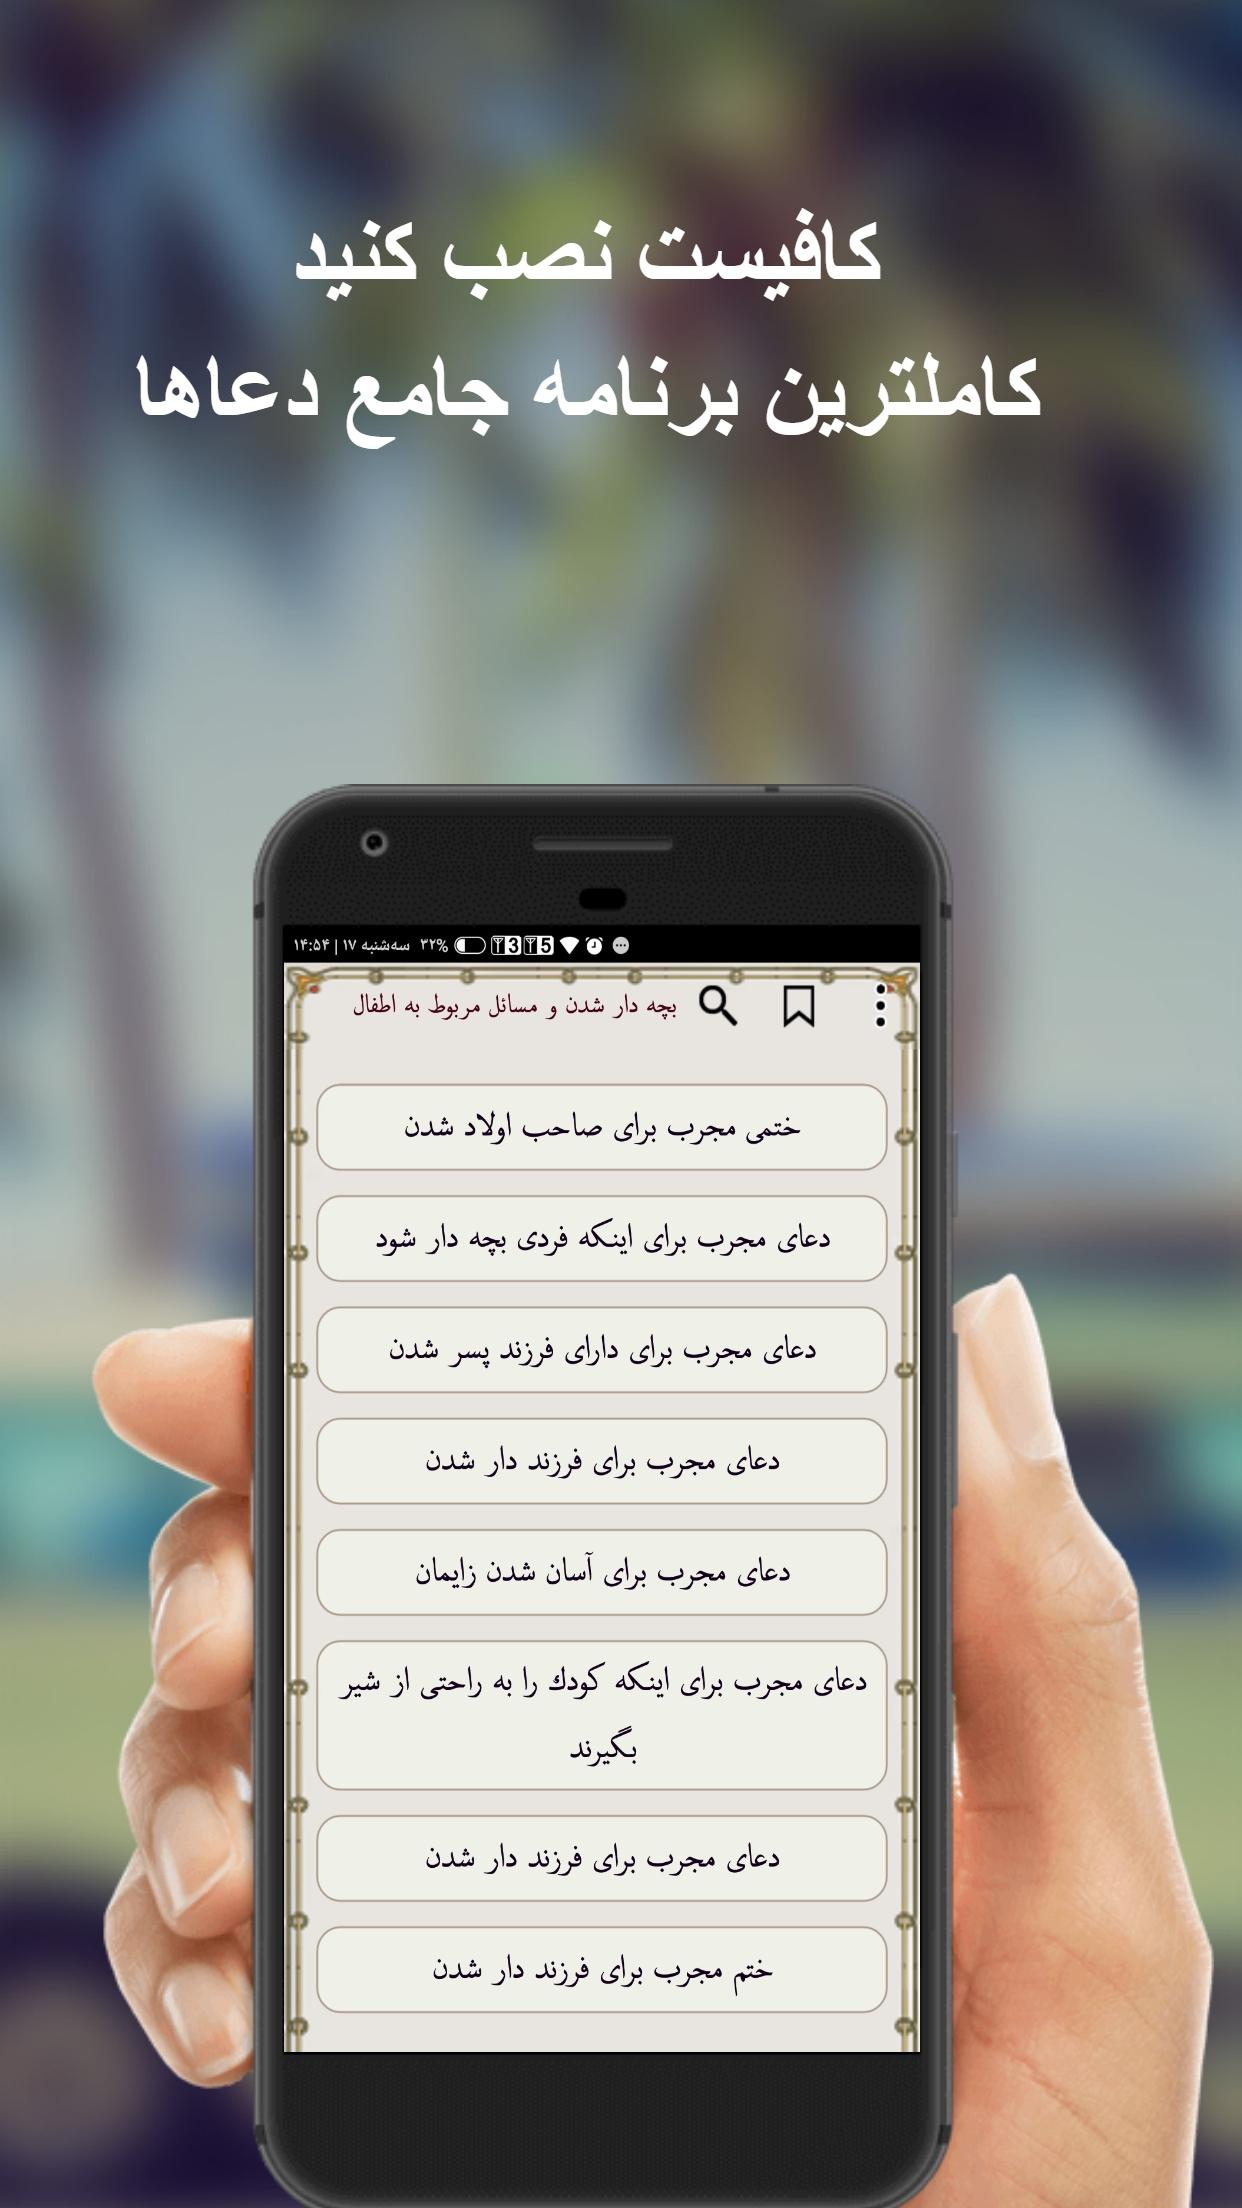 کافیست نصب کنید
کاملترین برنامه جامع دعاها
۱۴:۵۴ | سه‌شنبه ۱۷ ۳۲%
3 5
بچه دار شدن و مسائل مربوط به اطفال
ختمی مجرب برای صاحب اولاد شدن
دعای مجرب برای اینکه فردی بچه دار شود
دعای مجرب برای دارای فرزند پسر شدن
دعای مجرب برای فرزند دار شدن
دعای مجرب برای آسان شدن زایمان
دعای مجرب برای اینکه کودك را به راحتی از شیر
بگیرند
دعای مجرب برای فرزند دار شدن
ختم مجرب برای فرزند دار شدن